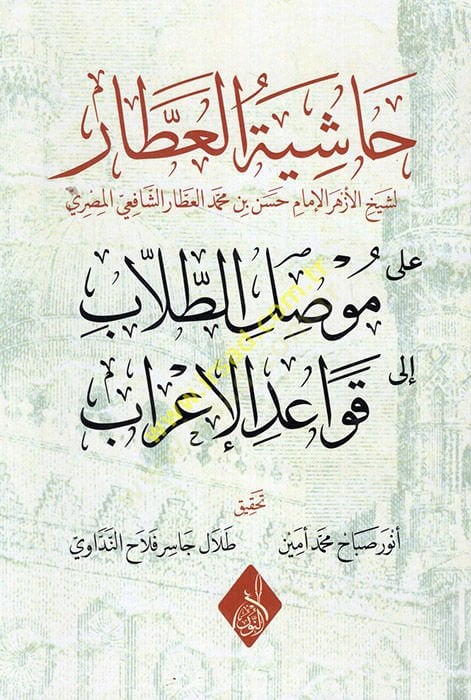 حَاشِيَةُ العَطَّار
لشيخ الأزهر الإمام حسن بن محمد العطار الشافعي المصري
على
مُوَصِّل الطُّلَّابِ
إلى
قَوَاعِدِ الإِعْرَاب
تحقيق
أنور صباح محمد أمين    طلال جاسر فلاح النداوي
النور